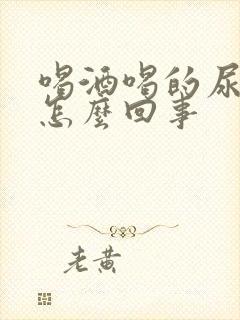 喝酒喝的尿
怎麼回事
老黄